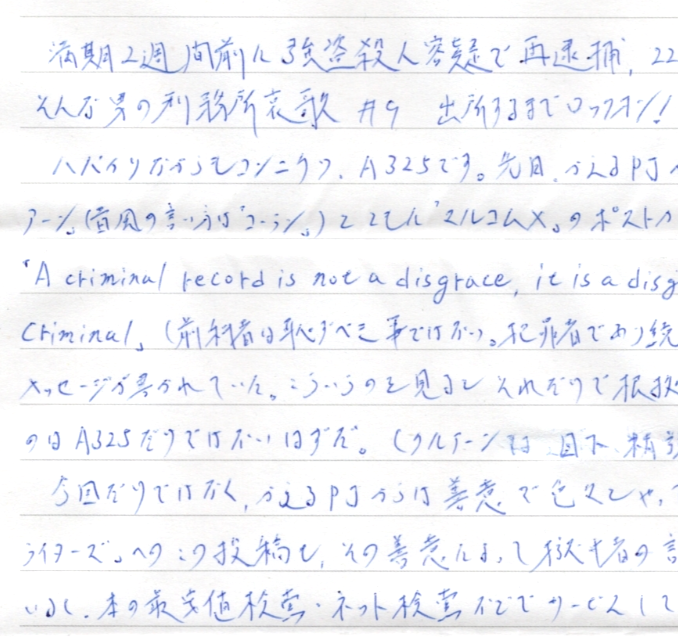 満期2週間前に強盗殺人容疑で再逮捕、22
そんな男の刑務所哀歌 #9 出所するまでロックオン!
ハバカリながらもコンニチワ、A325です。先日、かえるPJ
アーン』(昔風の言い方は『コーラン』)とともに『マルコムX』のポストカ
「A criminal record is not a disgrace, it is a disg
Criminal」(前科者は恥ずべき事ではない。犯罪者であり続
メッセージが書かれていた。こういうのを見ると それだけで根拠
のはA325だけではないはずだ。(クルアーンは 目下 精
今回だけではなく、かえるPJからは善意で色々とや
ライターズ』へのこの投稿も、その善意によって獄中者の言
いるし、本の最安値検索・ネット検索などでサービスして